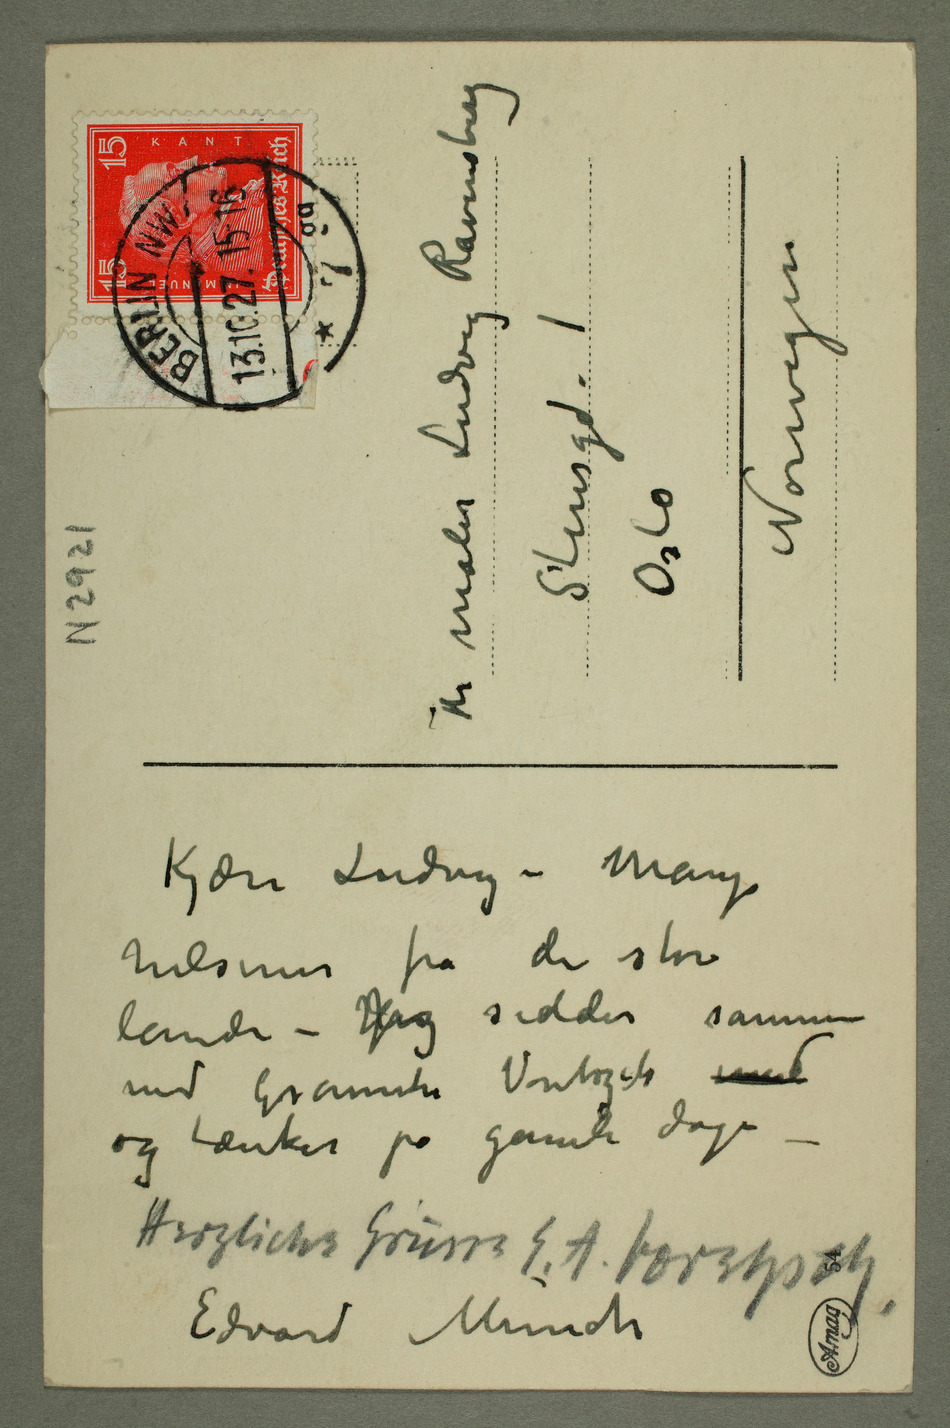 15 KANT 15
Deutsches Reich
IMMANUEL
BERLIN NW 7
13.10.27. 15-16
* 7 gg
N 2921
Hr maler Ludvig Ravensberg
Stensgd. 1
Oslo
Norwegen
Kjære Ludvig – Mange
hilsener fra de store
lande – Jeg sidder sammen
med Gramle Voretzsch med
og tænker på gamle dage –
Herzliche Grüsse E. A. Voretzsch.
Edvard Munch
Amag 54